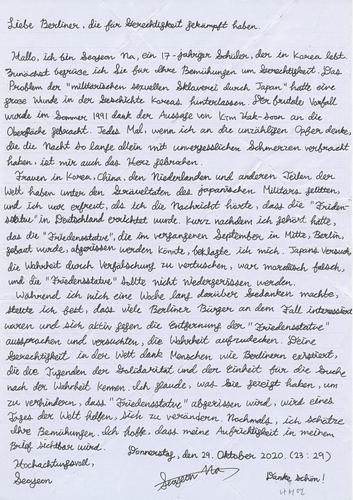 Liebe Berliner, die für Gerechtigkeit gekämpft haben.
Hallo, ich bin Seoyeon Na, ein 17-jähriger Schüler, der in Korea lebt.
Zunächst begrüße ich Sie für Ihre Bemühungen um Gerechtigkeit. Das
Problem der "militärischen sexuellen Sklaverei durch Japan" hatte eine
große Wunde in der Geschichte Koreas hinterlassen. Der brutale Vorfall
wurde im Sommer 1991 dank der Aussage von Kim Hak-soon an die
Oberfläche gebracht. Jedes Mal, wenn ich an die unzähligen Opfer denke,
die die Nacht so lange allein mit unvergesslichen Schmerzen verbracht
haben, ist mir auch das Herz gebrochen.
Frauen in Korea, China, den Niederlanden und anderen Teilen der
Welt haben unter den Gräueltaten des japanischen Militärs gelitten,
und ich war erfreut, als ich die Nachricht hörte, dass die "Frieden-
sstatue" in Deutschland errichtet wurde. Kurz nachdem ich gehört hatte,
das die "Friedensstatue", die im vergangenen September in Mitte, Berlin,
gebaut wurde, abgerissen werden könnte, beklagte ich mich. Japans Versuch,
die Wahrheit durch Verfälschung zu vertuschen, war moralisch falsch,
und die "Friedensstatue" sollte nicht niedergerissen werden.
Während ich mich eine Woche lang darüber Gedanken machte,
stellte ich fest, dass viele Berliner Bürger an dem Fall interessiert
waren und sich aktiv gegen die Entfernung der "Friedensstatue"
aussprachen und versuchten, die Wahrheit aufzudecken. Deine
Gerechtigkeit in der Welt dank Menschen wie Berlinern existiert,
die die Tugenden der Solidarität und der Einheit für die Suche
nach der Wahrheit kennen. Ich glaube, was Sie gezeigt haben, um
zu verhindern, dass "Friedensstatue" abgerissen wird, wird eines
Tages der Welt helfen, sich zu verändern. Nochmals, ich schätze
Ihre Bemühungen. Ich hoffe, dass meine Aufrichtigkeit in meinem
Brief sichtbar wird.
Donnerstag, den 29. Oktober 2020. (23:29)
Hochachtungsvoll,
Seoyeon
Seoyeon Na
Danke schön!